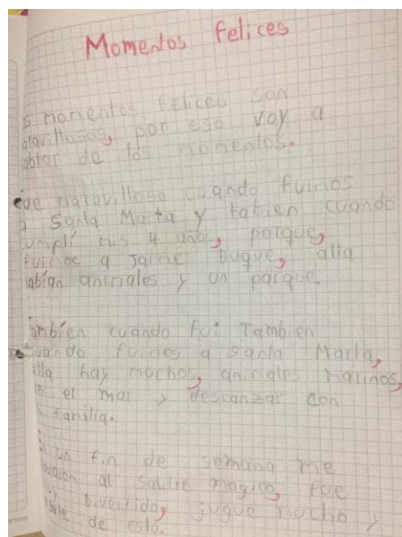 Momentos felices
s momentos felices son
aravillosos, por eso voy a
ablar de los momentos.
ue maravilloso cuando fuimos
a Santa Marta y tabien cuando
umplí mis 4 años, porque,
fuimos a Jaime Duque, alla
abían animales y un parque.
ambíen cuando fui También
cuando fuimos a Santa Marta,
lla hay muchos, animales marinos,
el mar y descanzar con
familia.
un fin de semana me
al salitre magico, fue
divertido, jugue mucho y
de esto.